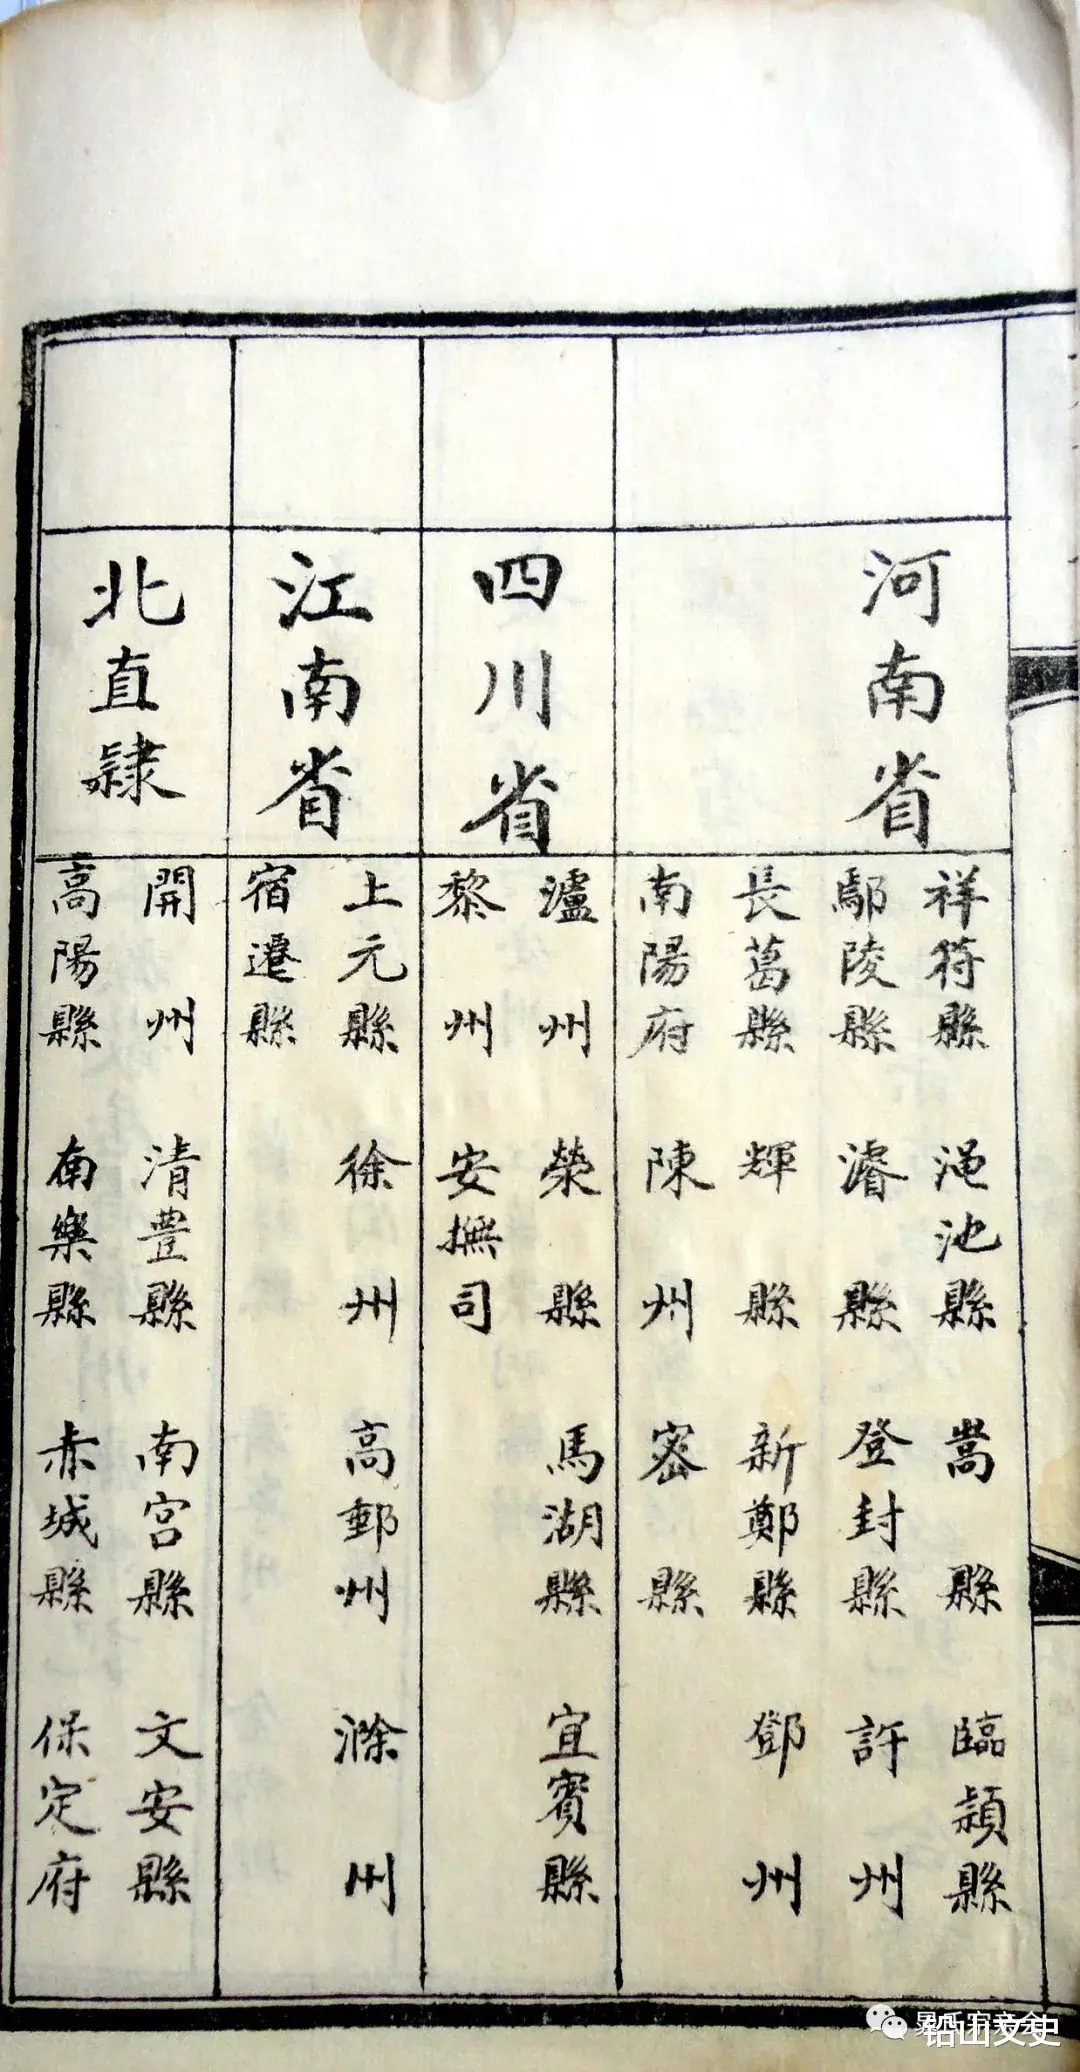 河南省
祥符縣 澠池縣 嵩縣 臨潁縣
鄢陵縣 濬縣 登封縣 許州
長葛縣 輝縣 新鄭縣 鄧州
南陽府 陳州 密縣
四川省
瀘州 榮縣 馬湖縣 宜賓縣
黎州 安撫司
江南省
上元縣 徐州 高郵州 滁州
宿遷縣
北直隸
開州 清豊縣 南宮縣 文安縣
高陽縣 南樂縣 赤城縣 保定府
铅山文史